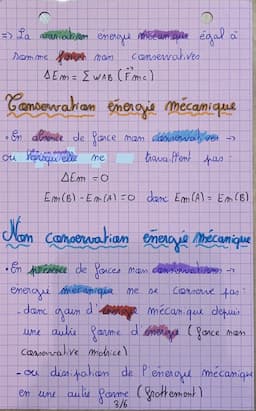 => La variation énergie mécanique égal à
somme forces non conservatives
ΔEm = Σ WAB (F⃗mc)
Conservation énergie mécanique
• En absence de force non conservatives →
ou lorsqu'elle ne travaillent pas :
ΔEm = 0
Em(B) - Em(A) = 0 donc Em(A) = Em(B)
Non conservation énergie mécanique
• En présence de forces non conservatives →
énergie mécanique ne se conserve pas :
- donc gain d'énergie mécanique depuis
une autre forme d'énergie (force non
conservative motrice)
- ou dissipation de l'énergie mécanique
en une autre forme (frottement)
3/6